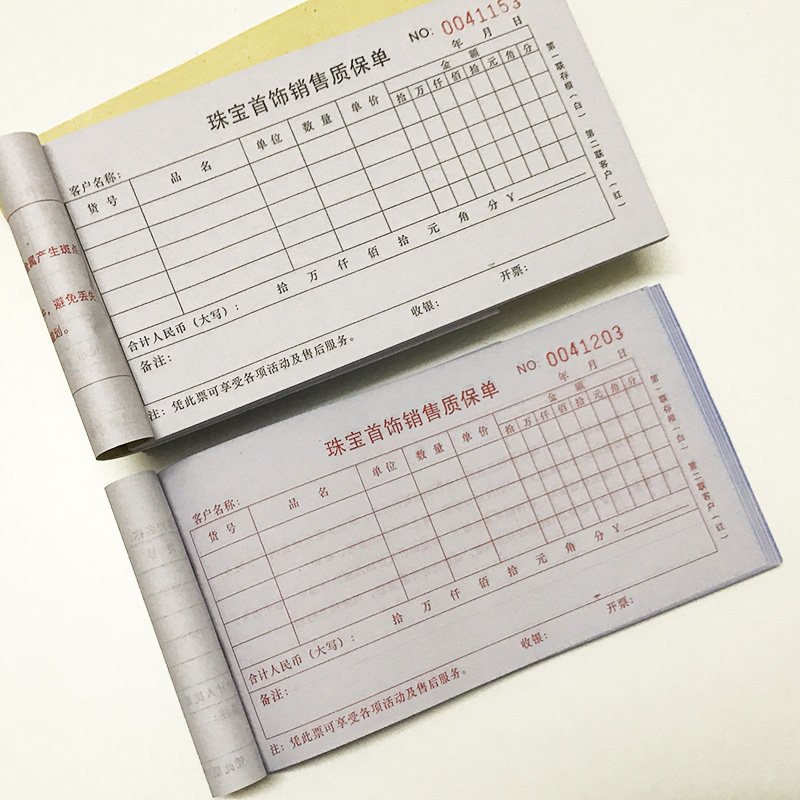 珠宝首饰销售质保单
NO: 0041153
年 月 日
客户名称:
货号 品名 单位 数量 单价 金额
拾 万 仟 佰 拾 元 角 分
合计人民币（大写）: 拾 万 仟 佰 拾 元 角 分 ¥
备注:
收银: 开票:
注: 凭此票可享受各项活动及售后服务。
第一联存根（白） 第二联客户（红）
属产生斑点
避免丢失
划。
珠宝首饰销售质保单
NO: 0041203
年 月 日
客户名称:
货号 品名 单位 数量 单价 金额
拾 万 仟 佰 拾 元 角 分
合计人民币（大写）: 拾 万 仟 佰 拾 元 角 分 ¥
备注:
收银: 开票:
注: 凭此票可享受各项活动及售后服务。
第一联存根（白） 第二联客户（红）